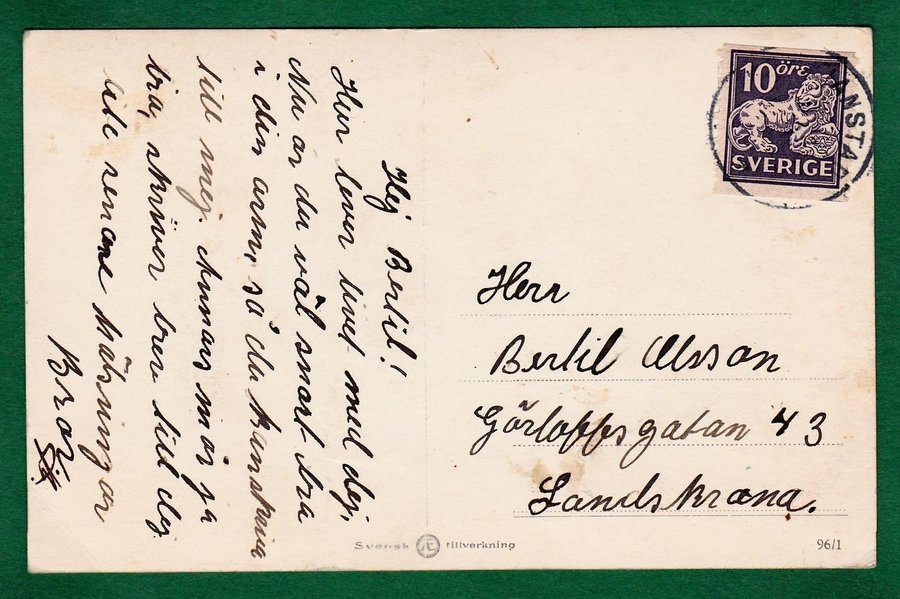 Hej Bertil!
Hur lever livet med dej,
Nu är du väl snart bra
i din arm, så du kan skriva
till mej. Annars mår ja
bra, skriver brev till dej
senare Hälsningar
10 öre
SVERIGE
NSTA
Herr
Bertil Olsson
Görloffsgatan 43
Landskrona.
Svensk Æ tillverkning
96/1